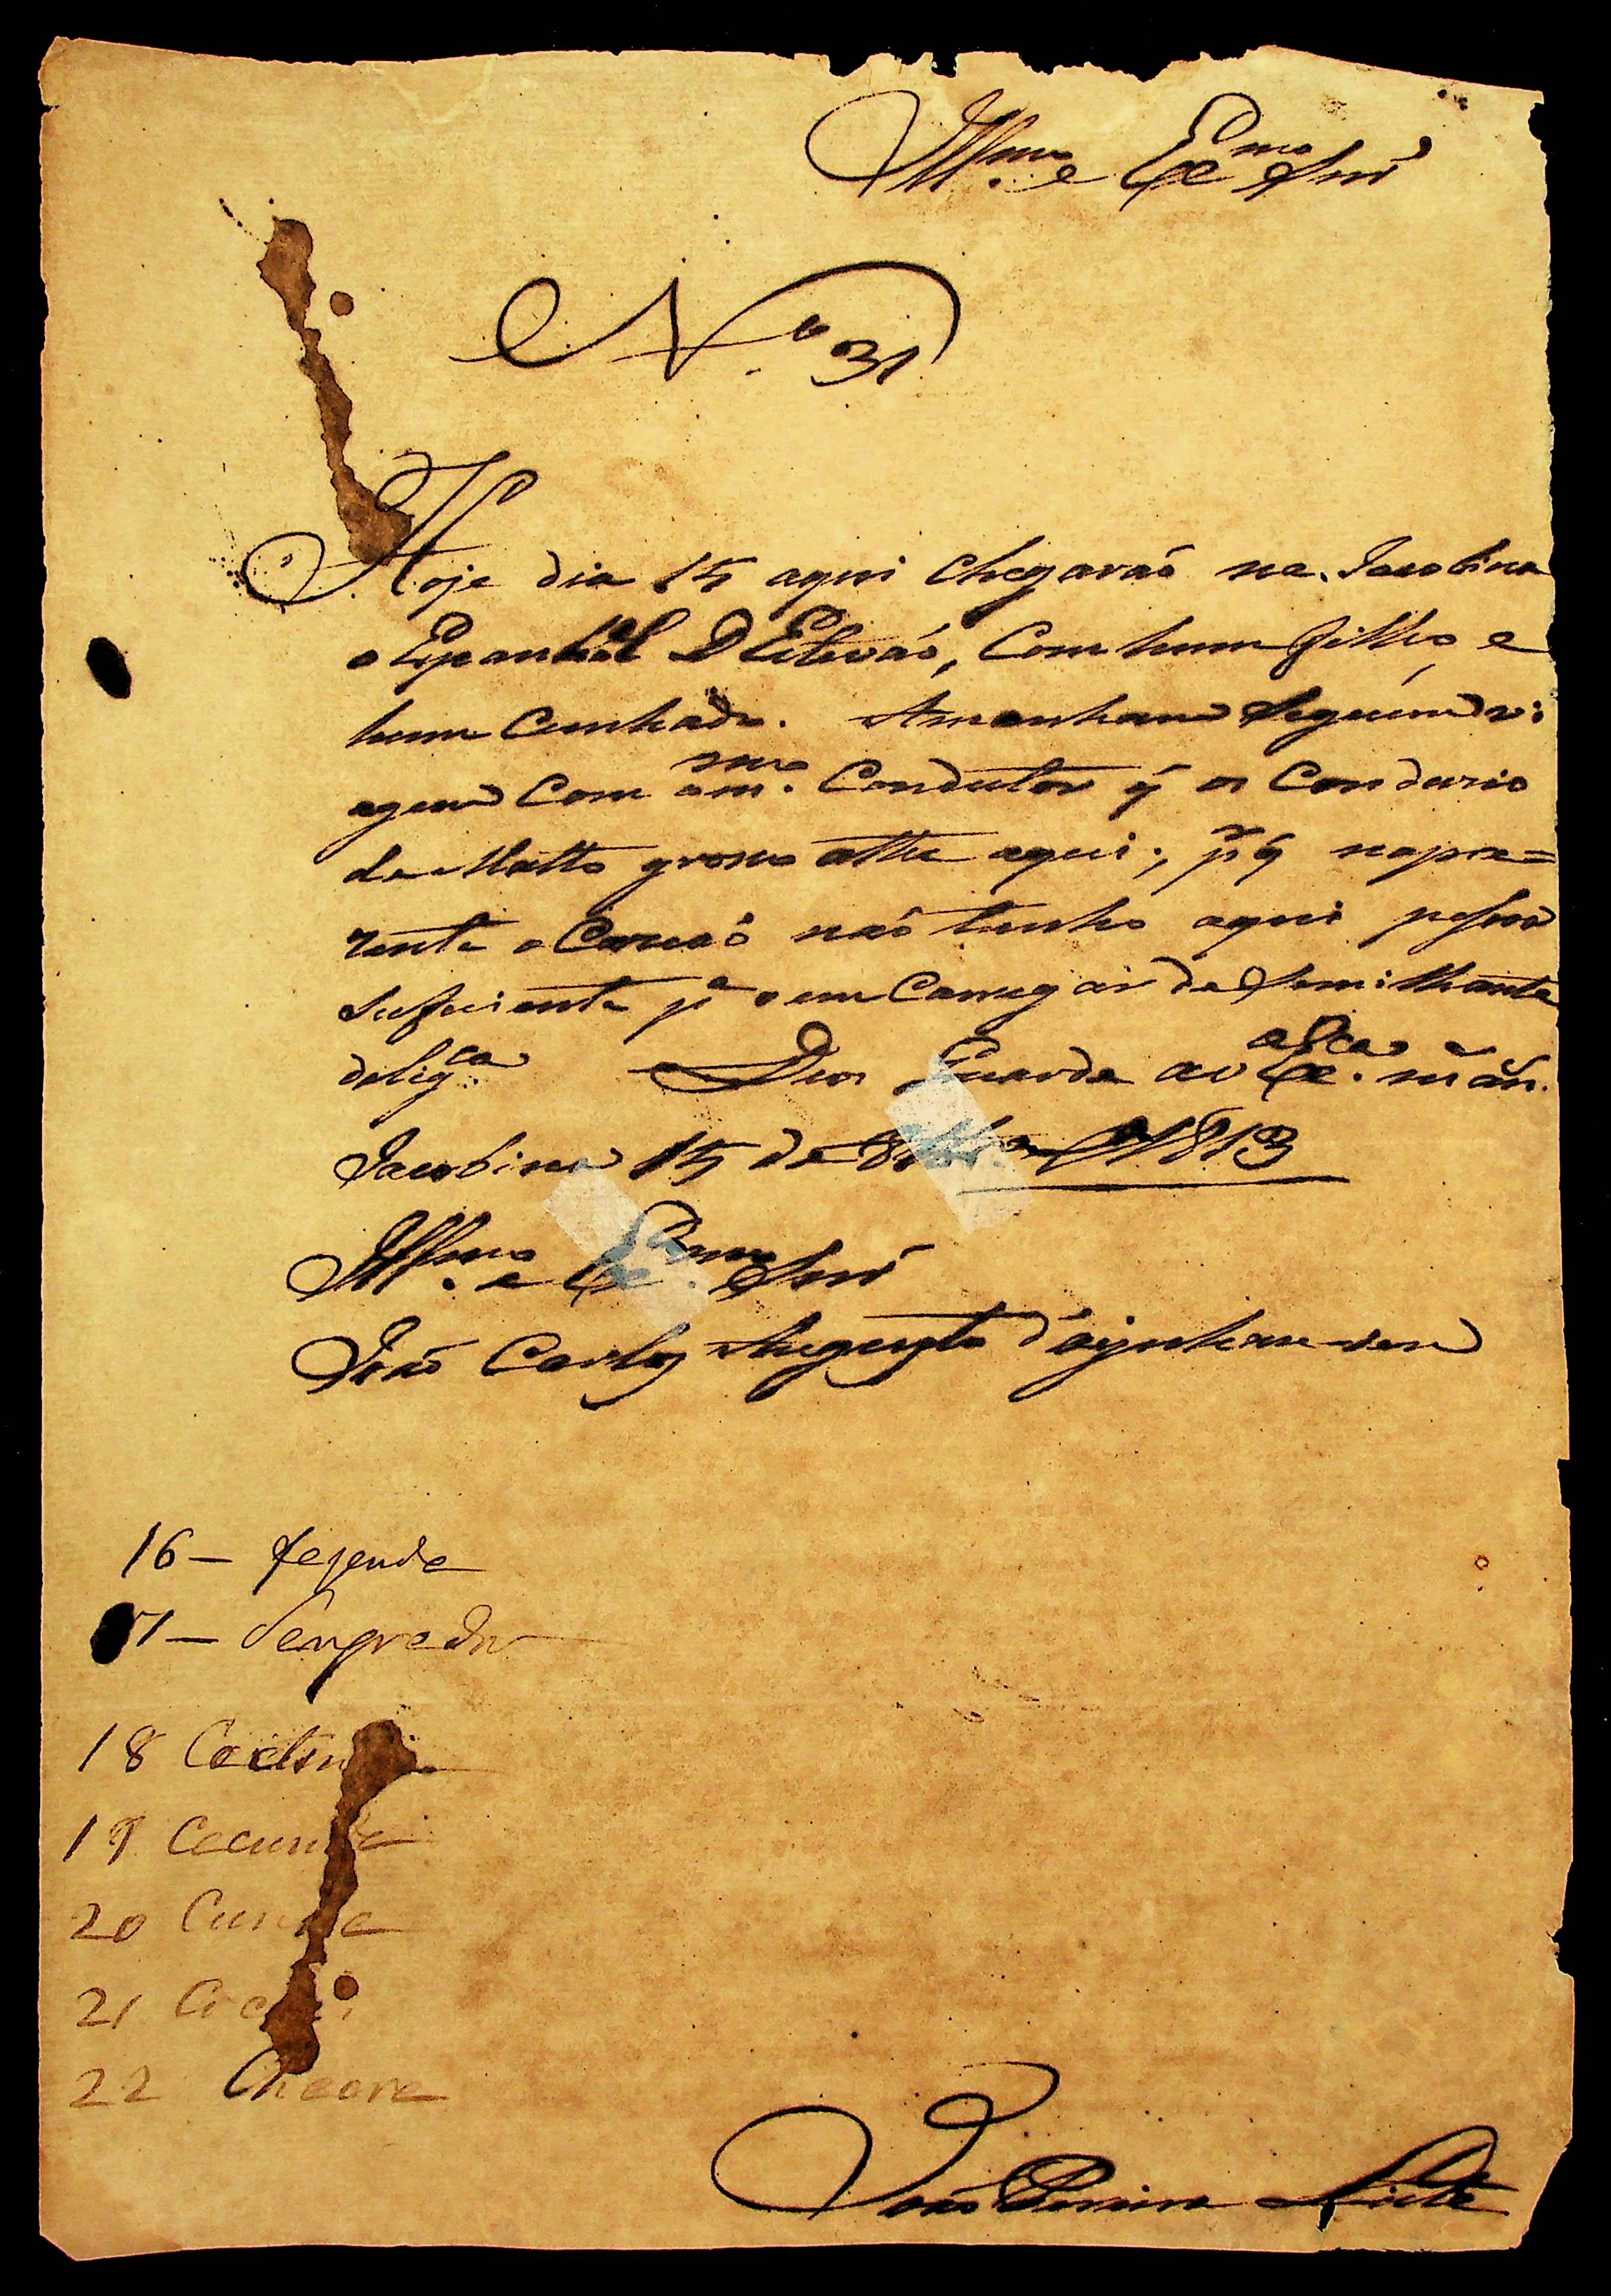 Illmo. e Exmo Snr
N.o 31
Hoje dia 15 aqui chegaraõ na Jacobina
o Espanhol D Estevaõ, Com hum filho e
hum Cunhado. Amanham Seguem vi:
agem Com o mmo. Condutor q̃ os Conduzio
de Matto groso athe aqui; pr q̃ no pre=
zente o Cazeaõ naõ tenho aqui pesoa
suficiente pa o em Carregar de Semilhante
deligca. Deos Guarde a V Exca. m. an.
Jacobina 15 de 8bro. de 1813
Illmo. e Exmo. Snr
Joaõ Carlos Augusto d'oeynhausen
16 — fazenda
17 — Sangrador
18
19
20
21
22
Joaõ Pereira Leite